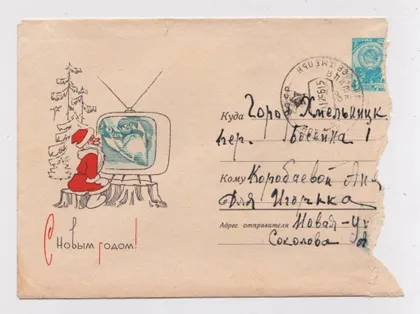 С Новым годом!
Куда Город Хмельницк
пер.
Кому Коробаевой
для Игорька
Адрес отправителя Новая-
Соколова